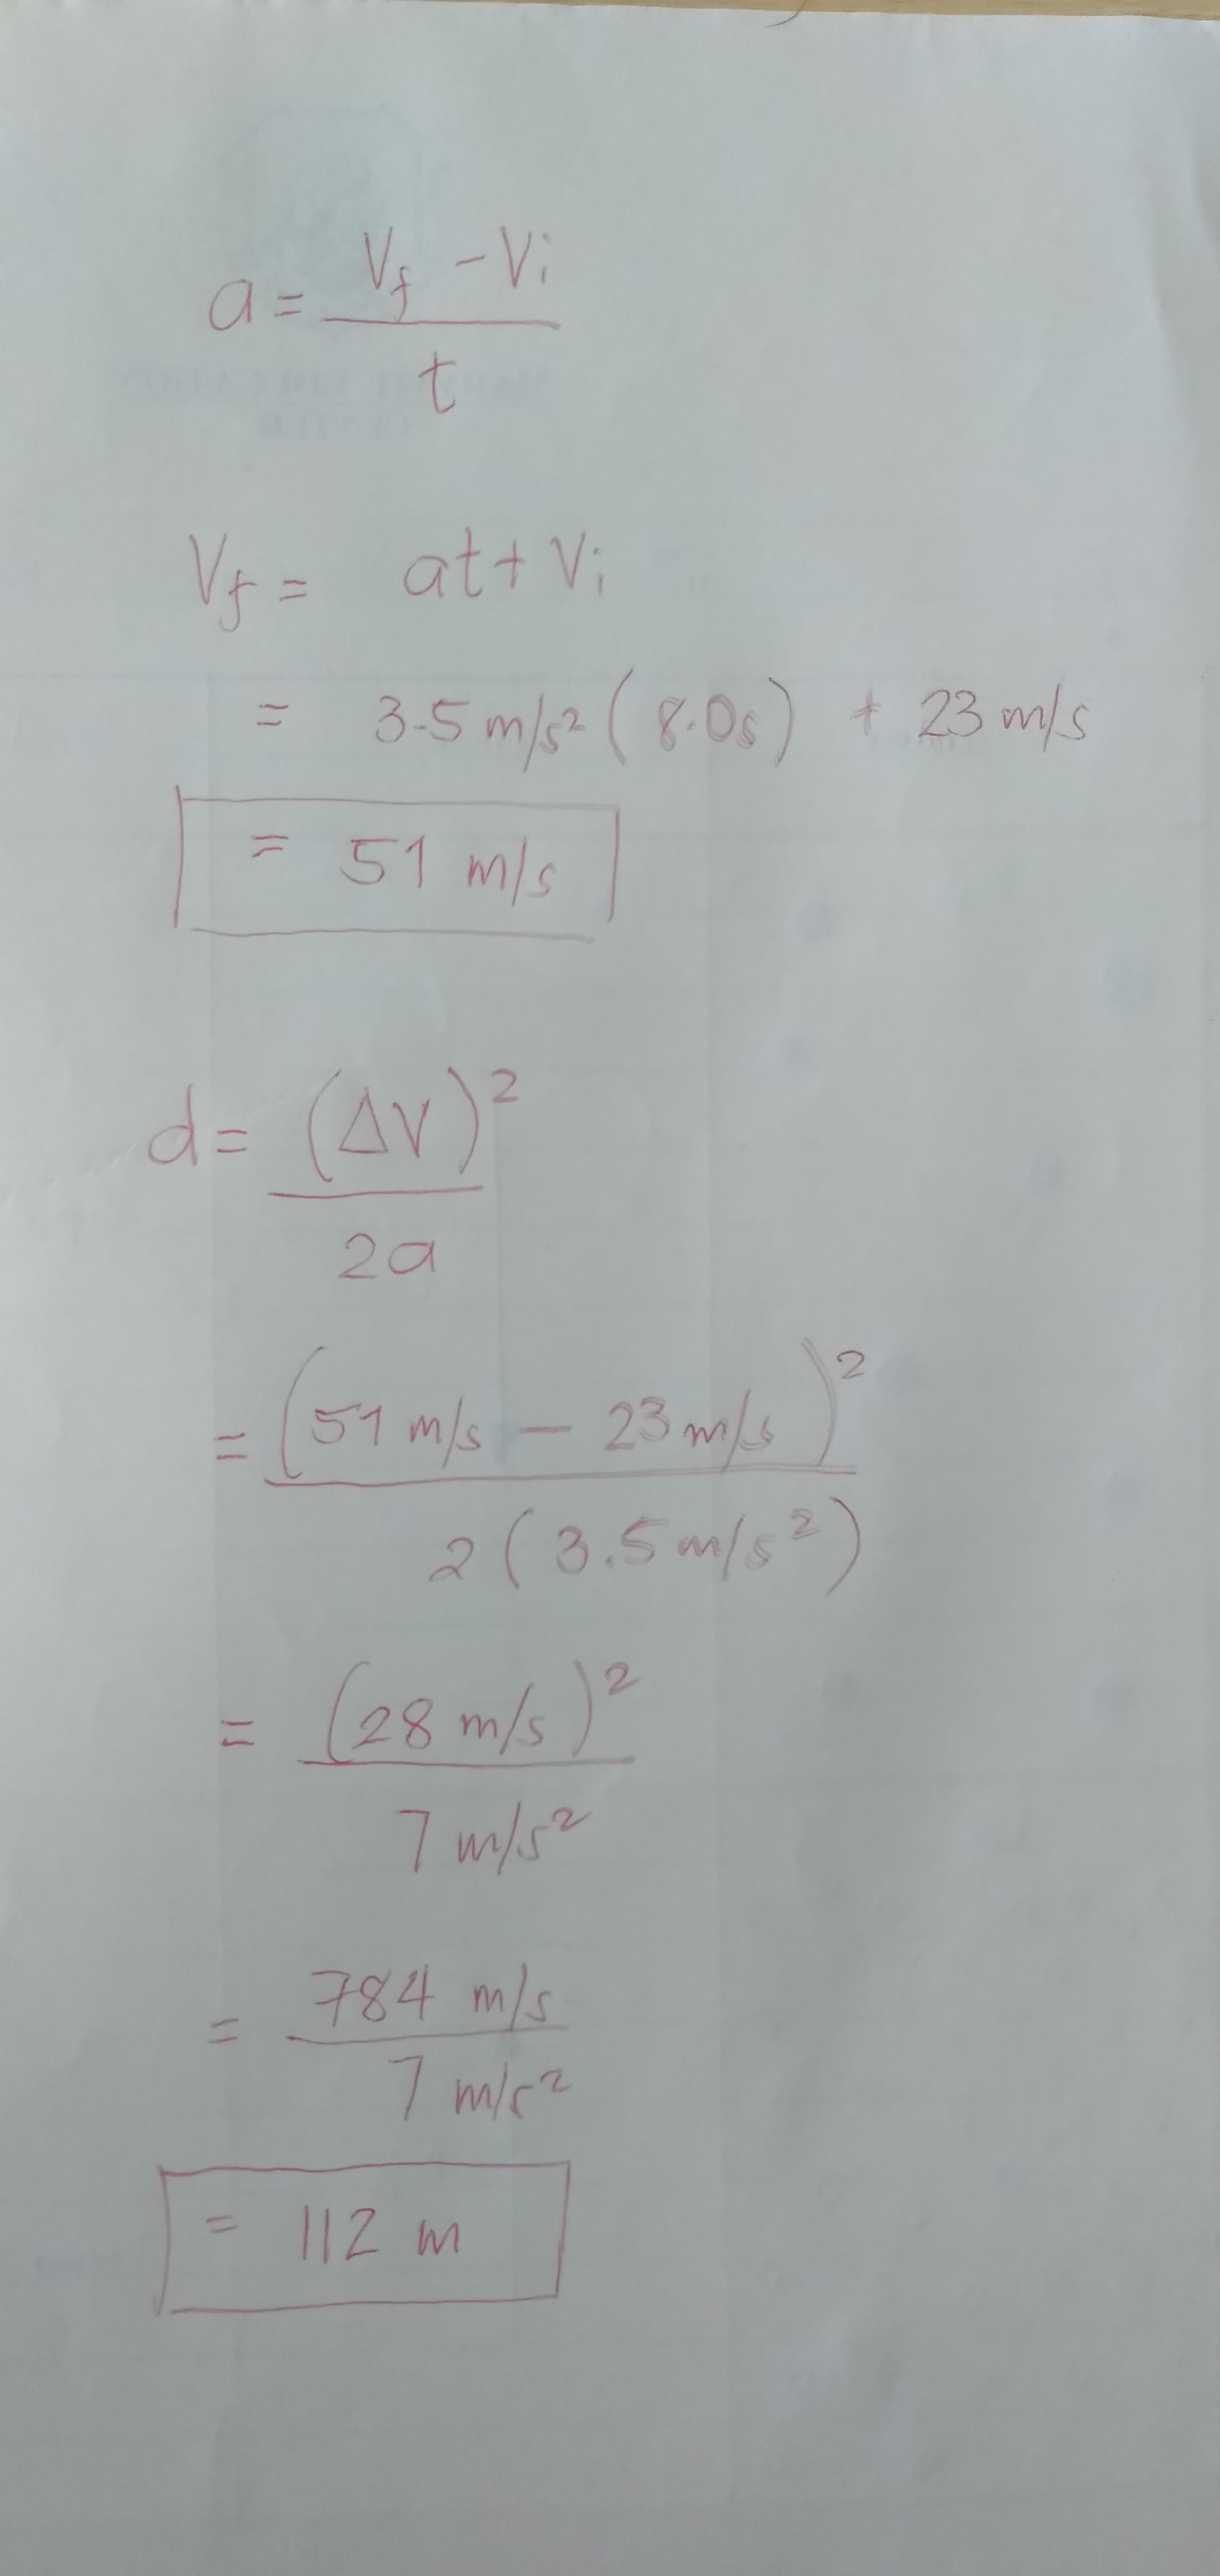 a = Vf - Vi
t
Vf = at + Vi
= 3.5 m/s² (8.0s) + 23 m/s
= 51 m/s
d = (ΔV)²
2a
= (51 m/s - 23 m/s)²
2 (3.5 m/s²)
= (28 m/s)²
7 m/s²
= 784 m/s
7 m/s²
= 112 m